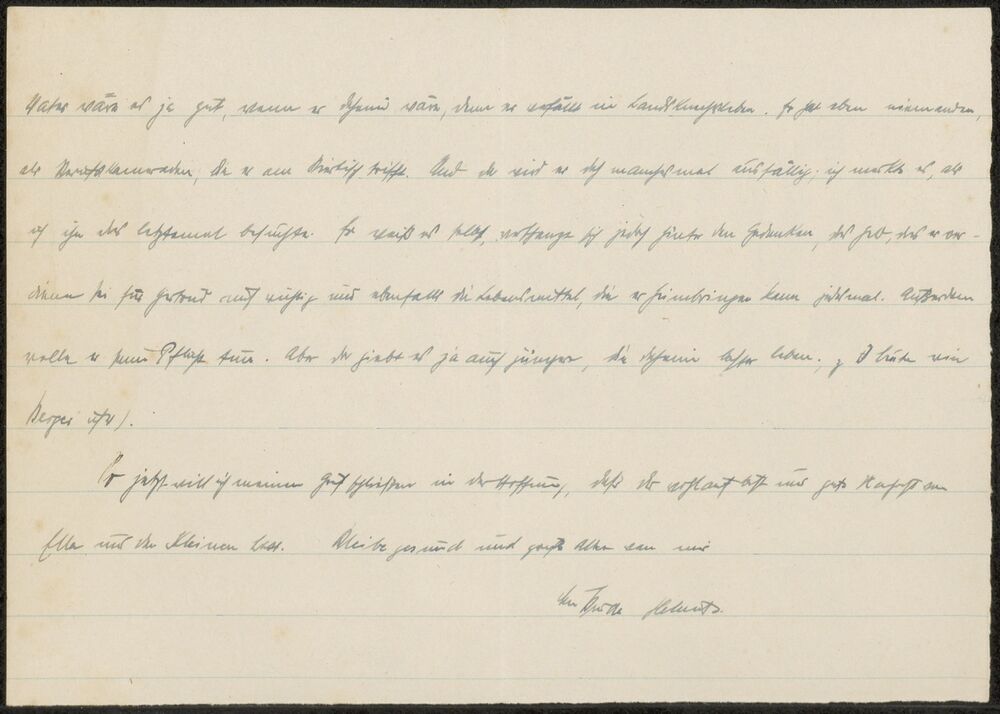 Vater wäre es ja gut, wenn er daheim wäre, denn er verfällt im Landsknechtsleben. Er hat eben niemanden,
als Berufskameraden, die er am Biertisch trifft. Und da wird er doch manchesmal ausfällig; ich merkte es, als
ich ihn das letztemal besuchte. Er weiß es selbst, verschanzt sich jedoch hinter den Gedanken, das Geld, das er ver-
diene sei für Gertrud noch wichtig und ebenfalls die Lebensmittel, die er heimbringen kann jedesmal. Außerdem
wolle er seine Pflicht tun. Aber da giebt es ja auch jüngere, die daheim besser leben, z. B. Leute wie
Berger usw).
So jetzt will ich meinen Brief schließen in der Hoffnung, daß du wohlauf bist und gute Nachricht von
Ella und den Kleinen hast. Bleibe gesund und grüße alle von mir
Dein Bruder Helmut.